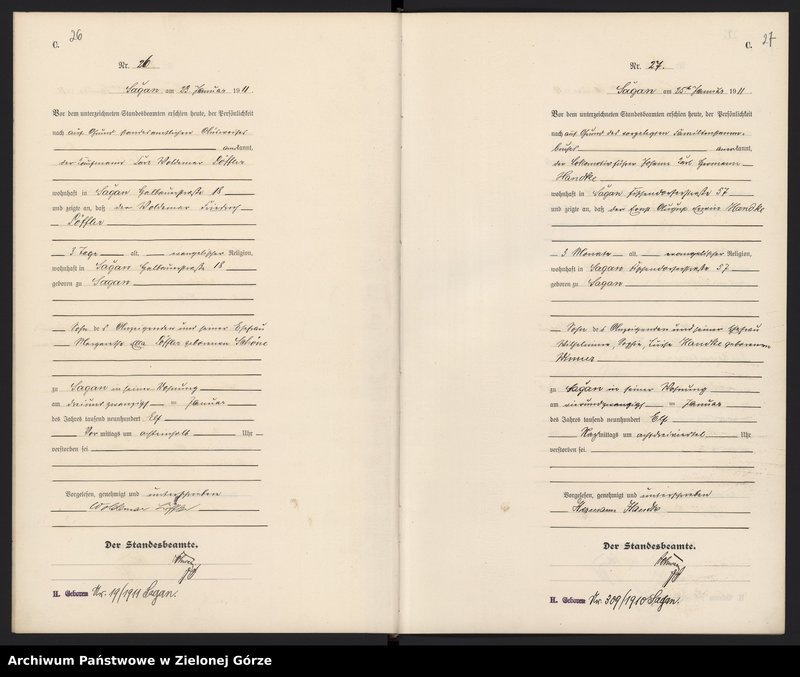 C. 26
Nr. 26
Sagan am 23 Januar 1911.
Vor dem unterzeichneten Standesbeamten erschien heute, der Persönlichkeit
nach auf Grund standesamtlichen
anerkannt,
der Kaufmann Woldemar Löffler
wohnhaft in Sagan 18
und zeigte an, daß der Woldemar Friedrich
Löffler
3 Tage alt, evangelischer Religion,
wohnhaft in Sagan 18
geboren zu Sagan
Sohn des Anzeigenden und seiner Ehefrau
Margarethe Löffler geborenen Schöne
zu Sagan in seiner Wohnung
am dreiundzwanzigsten Januar
des Jahres tausend neunhundert Elf
Vor mittags um Uhr
verstorben sei
Vorgelesen, genehmigt und unterschrieben
Woldemar Löffler
Der Standesbeamte.
H. Geboren Nr. 19/1911 Sagan.
C. 27
Nr. 27.
Sagan am 25ten Januar 1911.
Vor dem unterzeichneten Standesbeamten erschien heute, der Persönlichkeit
nach auf Grund des vorgelegten Familienstamm-
buches
anerkannt,
der Lokomotivführer Johann Carl Hermann
Handke
wohnhaft in Sagan 37
und zeigte an, daß der Ernst August Erwin Handke
3 Monate alt, evangelischer Religion,
wohnhaft in Sagan 37
geboren zu Sagan
Sohn des Anzeigenden und seiner Ehefrau
Wilhelmine, Sophie, Luise Handke geborenen
zu Sagan in seiner Wohnung
am vierundzwanzigsten Januar
des Jahres tausend neunhundert Elf
Nachmittags um achtdreiviertel Uhr
verstorben sei.
Vorgelesen, genehmigt und unterschrieben
Hermann Handke
Der Standesbeamte.
H. Geboren Nr. 309/1910 Sagan.
Archiwum Państwowe w Zielonej Górze